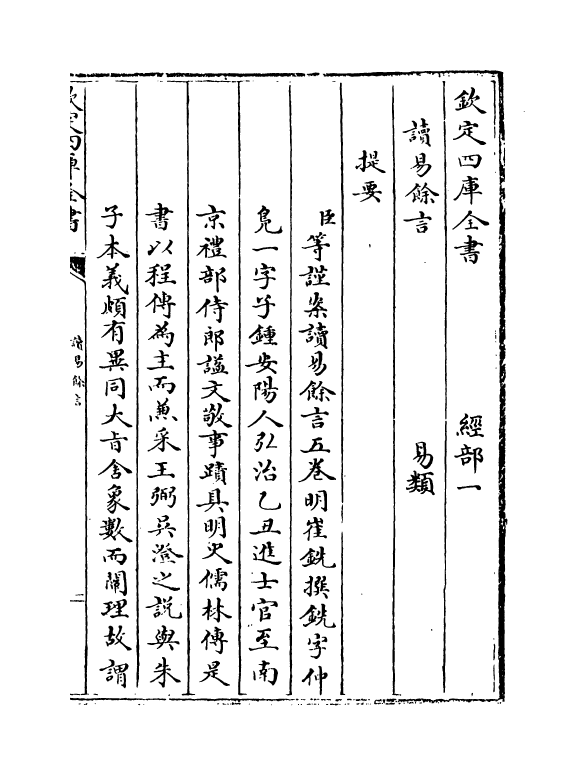 欽定四庫全書　經部一
讀易餘言　易類
提要
臣等謹案讀易餘言五巻明崔銑撰銑字仲
鳬一字子鍾安陽人弘治乙丑進士官至南
京禮部侍郎謚文敏事蹟具明史儒林傳是
書以程傳為主而兼采王弼吳澄之説與朱
子本義頗有異同大㫖舍象數而闡理故謂
欽定四庫全書
讀易餘言
一